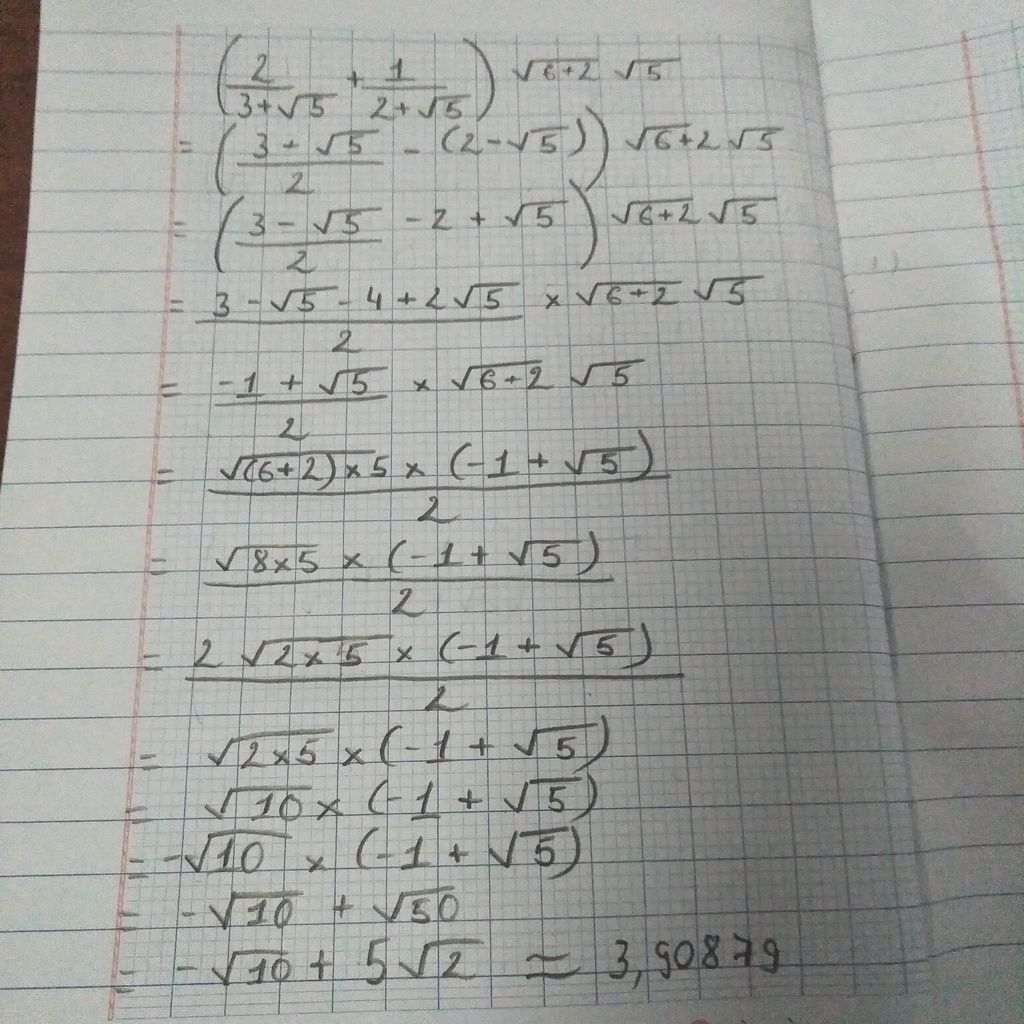 (2/(3+√5) + 1/(2+√5)) √(6+2) √5
= ((3-√5)/2 - (2-√5)) √(6+2) √5
= ((3-√5)/2 - 2 + √5) √(6+2) √5
= (3-√5-4+2√5)/2 × √(6+2) √5
= (-1+√5)/2 × √(6+2) √5
= (√((6+2)×5) × (-1+√5))/2
= (√(8×5) × (-1+√5))/2
= (2√(2×5) × (-1+√5))/2
= √(2×5) × (-1+√5)
= √10 × (-1+√5)
= -√10 × (-1+√5)
= -√10 + √50
= -√10 + 5√2 ≈ 3,90879